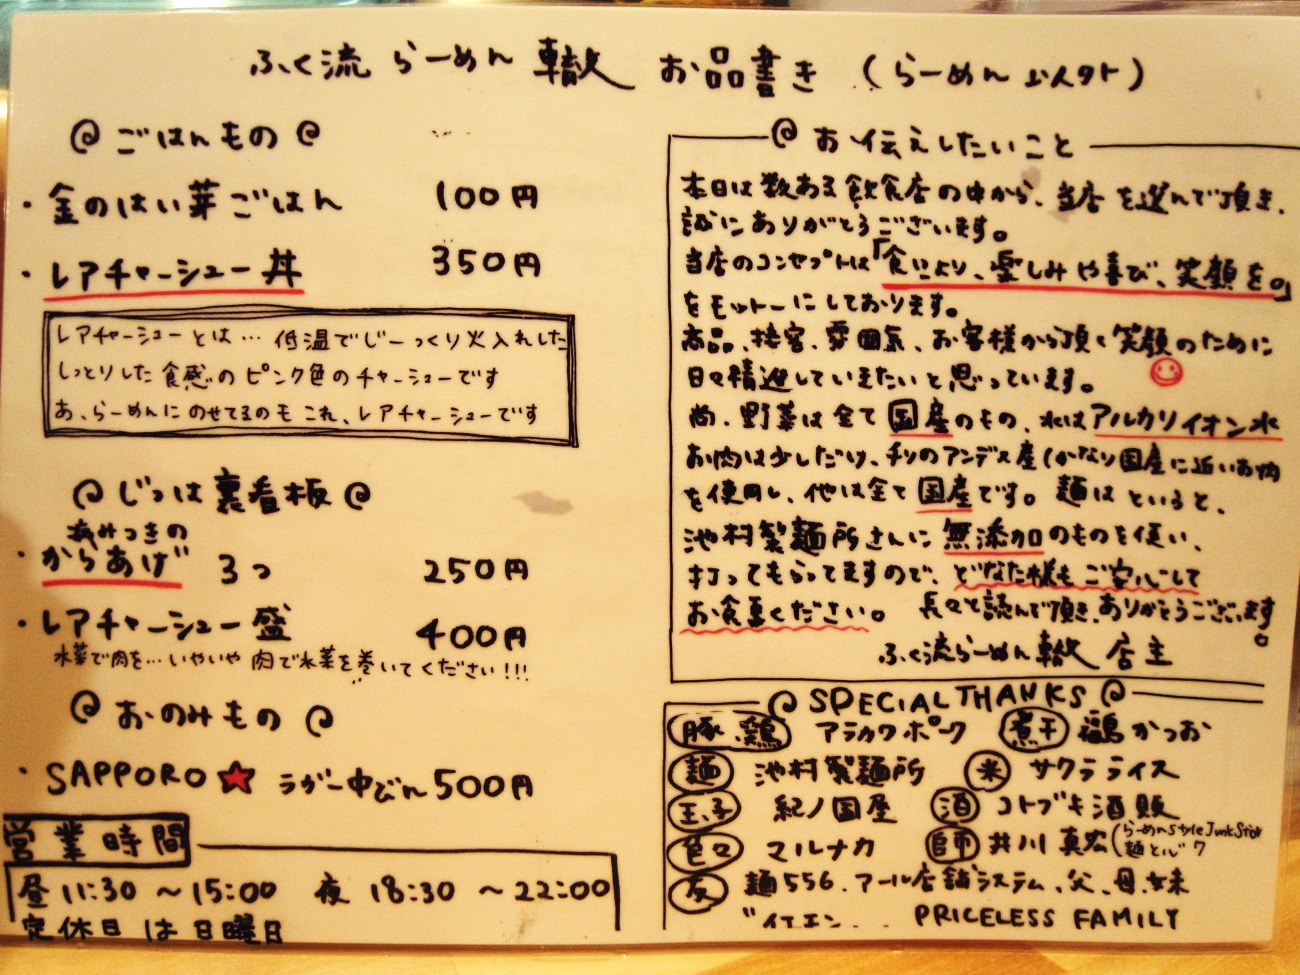 ふく流 らーめん 轍 お品書き (らーめん以外)
ごはんもの
・金のはい芽ごはん 100円
・レアチャーシュー丼 350円
レアチャーシューとは… 低温でじーっくり火入れした
しっとりした食感のピンク色のチャーシューです
あ、らーめんにのせてるのもこれ、レアチャーシューです
じつは裏看板
病みつきの
・からあげ 3つ 250円
・レアチャーシュー盛 400円
水菜で肉を…いやいや 肉で水菜を巻いてください!!!
おのみもの
・SAPPORO★ ラガー中びん 500円
営業時間
昼 11:30 ~15:00 夜 18:30 ~22:00
定休日は日曜日
お伝えしたいこと
本日は数ある飲食店の中から、当店を選んで頂き、
誠にありがとうございます。
当店のコンセプトは「食により、楽しみや喜び、笑顔を。」
をモットーにしております。
商品、接客、雰囲気、お客様から頂く笑顔のために
日々精進していきたいと思っています。
尚、野菜は全て国産のもの、水はアルカリイオン水
お肉は少しだけ、チリのアンデス産(かなり国産に近いお肉
を使用し、他は全て国産です。麺はというと、
池村製麺所さんに無添加のものを使い、
打ってもらってますので、どなた様もご安心して
お食事ください。長々と読んで頂き、ありがとうございます。
ふく流らーめん 轍 店主
SPECIAL THANKS
豚、鶏 アラカワポーク 煮干 福島かつお
麺 池村製麺所 米 サクラライス
玉子 紀ノ国屋 酒 コトブキ酒販
色々 マルナカ 師 井川真宏(らーめんstyle Junk Story
麺とビルク
友 麺556、アール店舗システム、父、母、妹
PRICELESS FAMILY